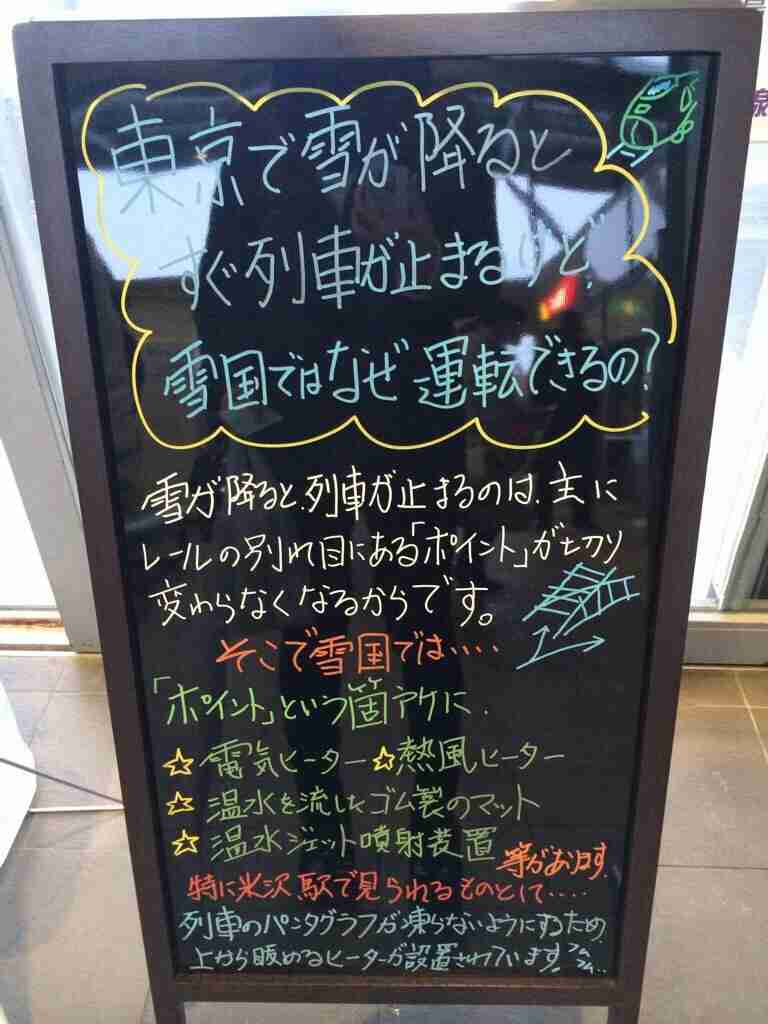 東京で雪が降ると
すぐ列車が止まるけど、
雪国ではなぜ運転できるの?
雪が降ると、列車が止まるのは、主に
レールの別れ目にある「ポイント」が切り
変わらなくなるからです。
そこで雪国では・・・・
「ポイント」という箇所に、
☆電気ヒーター ☆熱風ヒーター
☆温水を流したゴム製のマット
☆温水ジェット噴射装置
等があります。
特に米沢駅で見られるものとして・・・・
列車のパンタグラフが凍らないようにするため、
上から暖めるヒーターが設置されています!